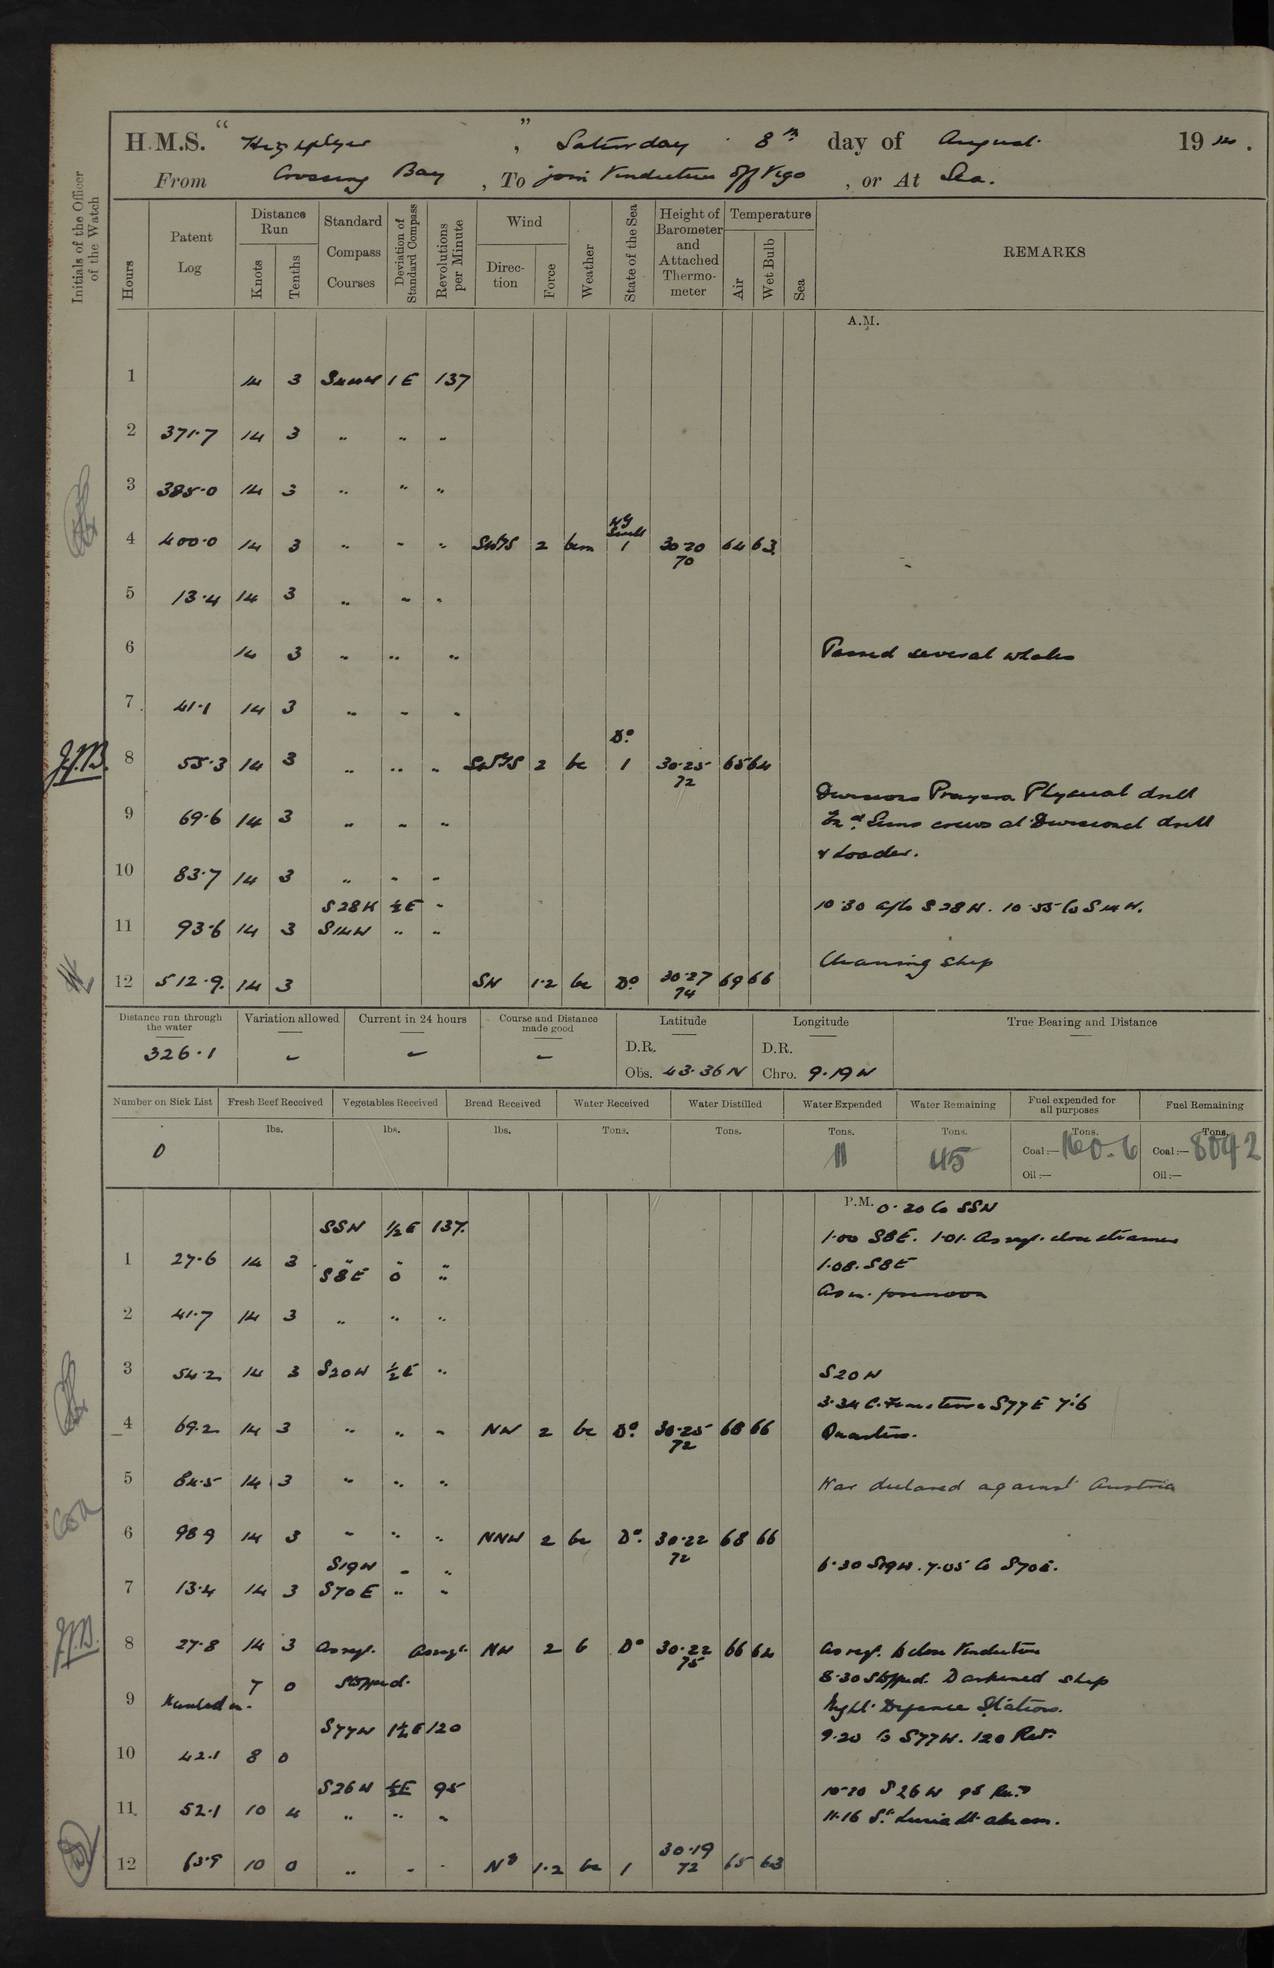 H.M.S. " Highflyer ", Saturday 8th day of August 1914.
From Crossing Bay, To join Vindictive off Vigo, or At Sea.
Initials of the Officer of the Watch
Hours
Patent Log
Distance Run
Knots
Tenths
Standard Compass Courses
Deviation of Standard Compass
Revolutions per Minute
Wind
Direction
Force
Weather
State of the Sea
Height of Barometer and Attached Thermometer
Temperature
Air
Wet Bulb
Sea
REMARKS
A.M.
1 14 3 1 E 137
2 371.7 14 3 " " "
3 385.0 14 3 " " "
4 400.0 14 3 " " " 2 bcm Swell 1 30.20 70 64 63
5 13.4 14 3 " " "
6 14 3 " " " Passed several whales
7 41.1 14 3 " " "
J.J.B. 8 55.3 14 3 " " " 2 bc Do 1 30.25 72 65 64
Divisions Prayers Physical drill
9 69.6 14 3 " " " Guns crews at Divisional drill
& Loader.
10 83.7 14 3 " " "
S28W ½E " 10.30 a/c S28W. 10.55 Co S14W.
11 93.6 14 3 S14W " "
Cleaning ship
12 512.9 14 3 SW 1.2 bc Do 30.27 74 69 66
Distance run through the water
326.1
Variation allowed
Current in 24 hours
Course and Distance made good
Latitude
D.R.
Obs. 43.36 N
Longitude
D.R.
Chro. 9.19 W
True Bearing and Distance
Number on Sick List
0
Fresh Beef Received
lbs.
Vegetables Received
lbs.
Bread Received
lbs.
Water Received
Tons.
Water Distilled
Tons.
Water Expended
Tons.
11
Water Remaining
Tons.
45
Fuel expended for all purposes
Tons.
Coal:— 160.6
Oil:—
Fuel Remaining
Tons.
Coal:— 8042
Oil:—
P.M. 0.20 Co SSW
SSW ½E 137 1.00 SBE. 1.01. As req. close steamer
1 27.6 14 3 " " " 1.08. SBE
SBE 0 " As in forenoon
2 41.7 14 3 " " "
3 54.2 14 3 S20W ½E " S20W
3.34 C. Finisterre S77E 7'.6
4 69.2 14 3 " " " NW 2 bc Do 30.25 72 68 66 Quarters.
5 84.5 14 3 " " " War declared against Austria
6 98.9 14 3 " " " NNW 2 bc Do 30.22 72 68 66
S19W " " 6.30 S19W. 7.05 Co S70E.
7 13.4 14 3 S70E " "
J.J.B. 8 27.8 14 3 As req. As req. NW 2 b Do 30.22 75 66 64 As req. to close Vindictive
7 0 Stopped. 8.30 Stopped. Darkened ship
9 Hauled in. Night Defence Stations.
S77W 1½E 120 9.20 Co S77W. 120 Revs
10 42.1 8 0
S26W ½E 95 10.20 S26W 95 Revs
11 52.1 10 4 " " " 11.16 Lt abeam.
12 63.9 10 0 " " " 1.2 bc 1 30.19 72 65 63